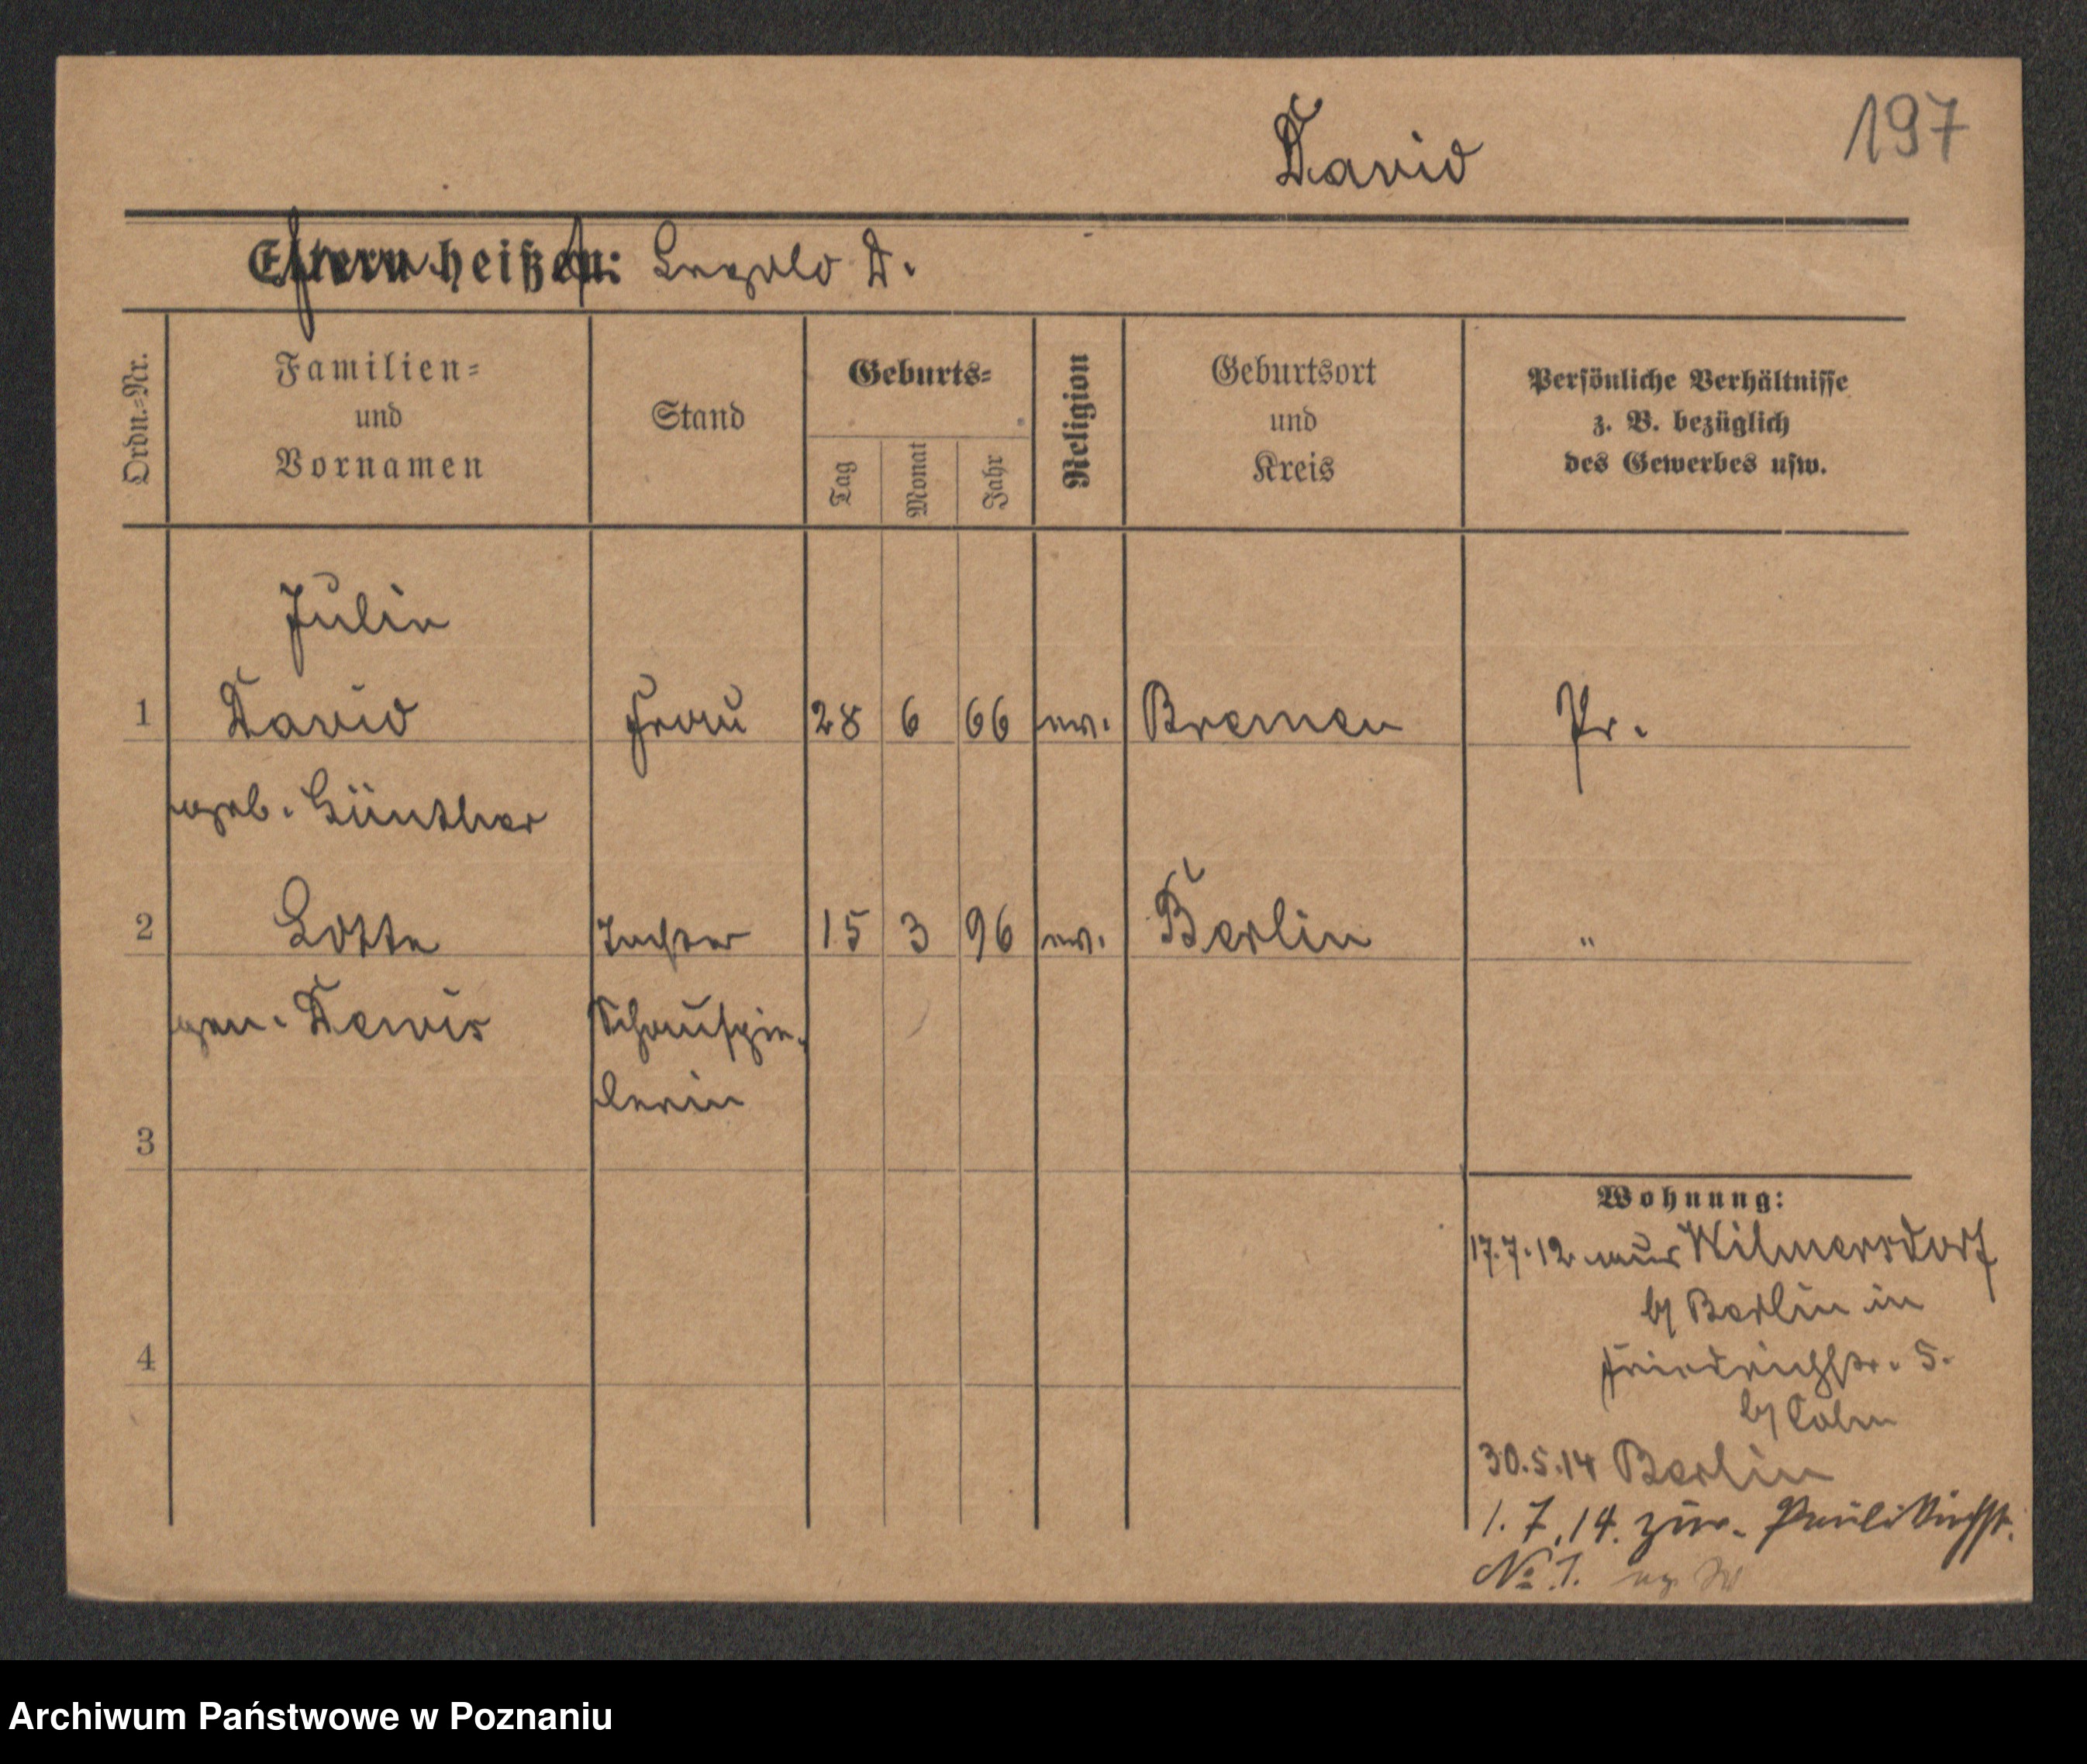 David
197
Eltern heißen: Leopold D.
Ordn.=Nr.
Familien=
und
Vornamen
Stand
Geburts=
Tag
Monat
Jahr
Religion
Geburtsort
und
Kreis
Persönliche Verhältnisse
z. B. bezüglich
des Gewerbes usw.
Julie
1 David Frau 28 6 66 ev. Bremen Pr.
geb. Günther
2 Lotte Tochter 15 3 96 ev. Berlin "
gen. Dewis Schauspie-
lerin
3
Wohnung:
17.7.12 aus Wilmersdorf
b/ Berlin in
4
Friedrichstr. 5.
b/ Cohn
30.5.14 Berlin
1.7.14. zur. Paulikirchst.
No 1.
Archiwum Państwowe w Poznaniu